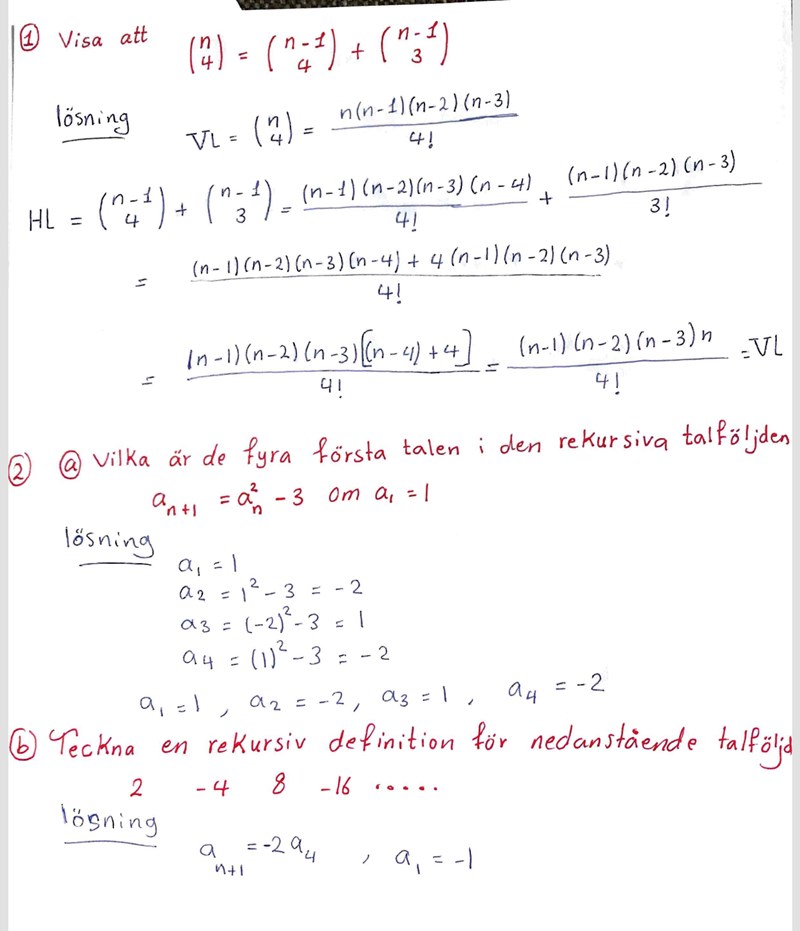 ① Visa att (n 4) = (n-1 4) + (n-1 3)
lösning VL = (n 4) = n(n-1)(n-2)(n-3) / 4!
HL = (n-1 4) + (n-1 3) = (n-1)(n-2)(n-3)(n-4) / 4! + (n-1)(n-2)(n-3) / 3!
= (n-1)(n-2)(n-3)(n-4) + 4(n-1)(n-2)(n-3) / 4!
= (n-1)(n-2)(n-3)[(n-4)+4] / 4! = (n-1)(n-2)(n-3)n / 4! = VL
② ⓐ Vilka är de fyra första talen i den rekursiva talföljden
a_{n+1} = a_n^2 - 3 om a_1 = 1
lösning
a_1 = 1
a_2 = 1^2 - 3 = -2
a_3 = (-2)^2 - 3 = 1
a_4 = (1)^2 - 3 = -2
a_1 = 1 , a_2 = -2 , a_3 = 1 , a_4 = -2
ⓑ Teckna en rekursiv definition för nedanstående talföljd
2 -4 8 -16 .....
lösning
a_{n+1} = -2a_4 , a_1 = -1